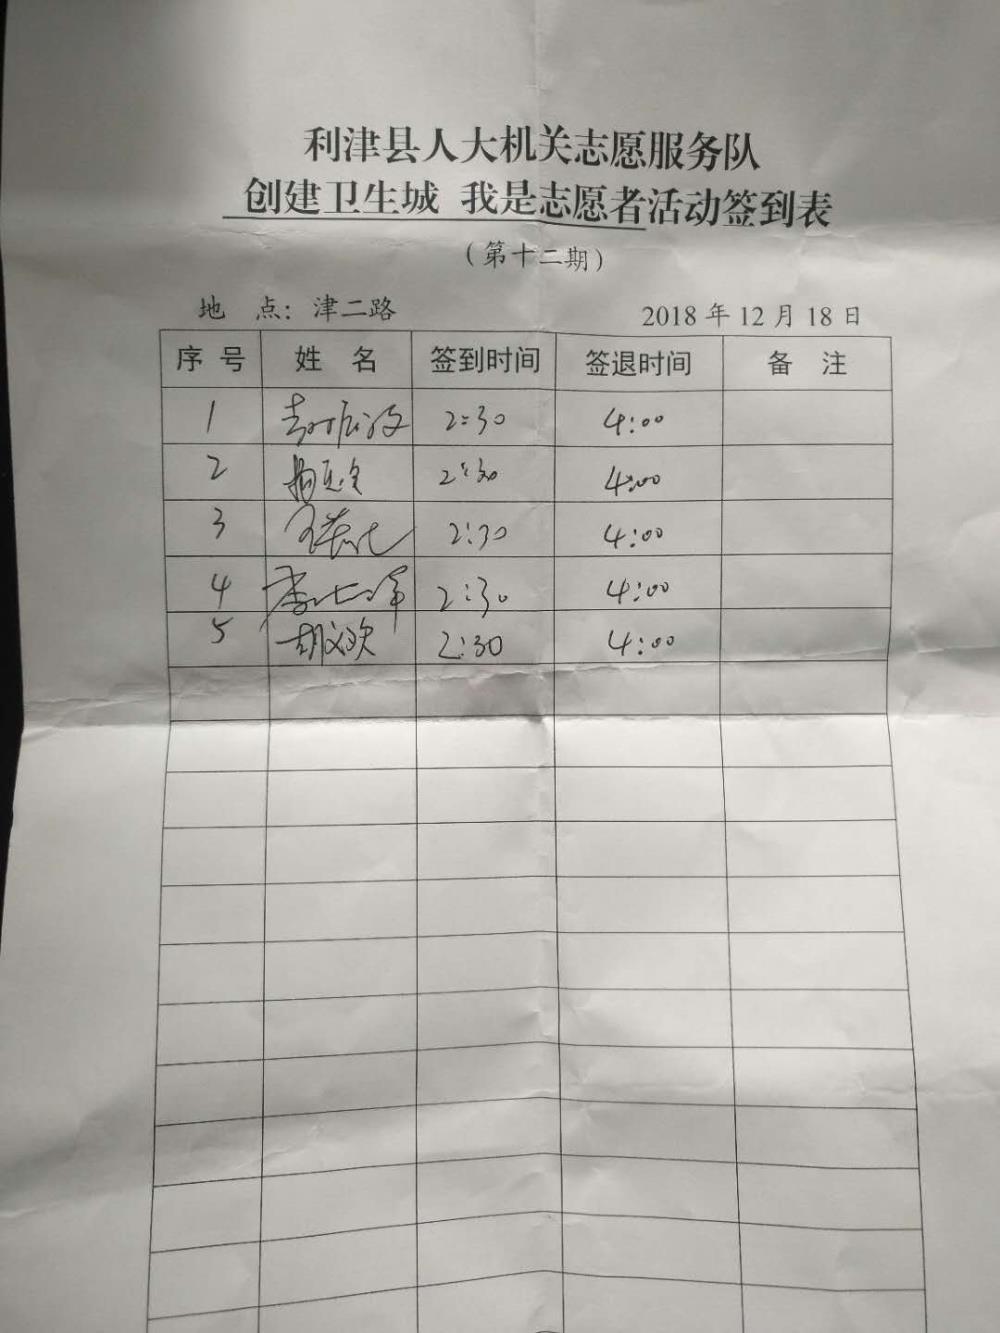 利津县人大机关志愿服务队
创建卫生城 我是志愿者活动签到表
（第十二期）
地 点：津二路 2018 年 12 月 18 日
序 号 姓 名 签到时间 签退时间 备 注
1 2:30 4:00
2 2:30 4:00
3 2:30 4:00
4 2:30 4:00
5 胡文欢 2:30 4:00